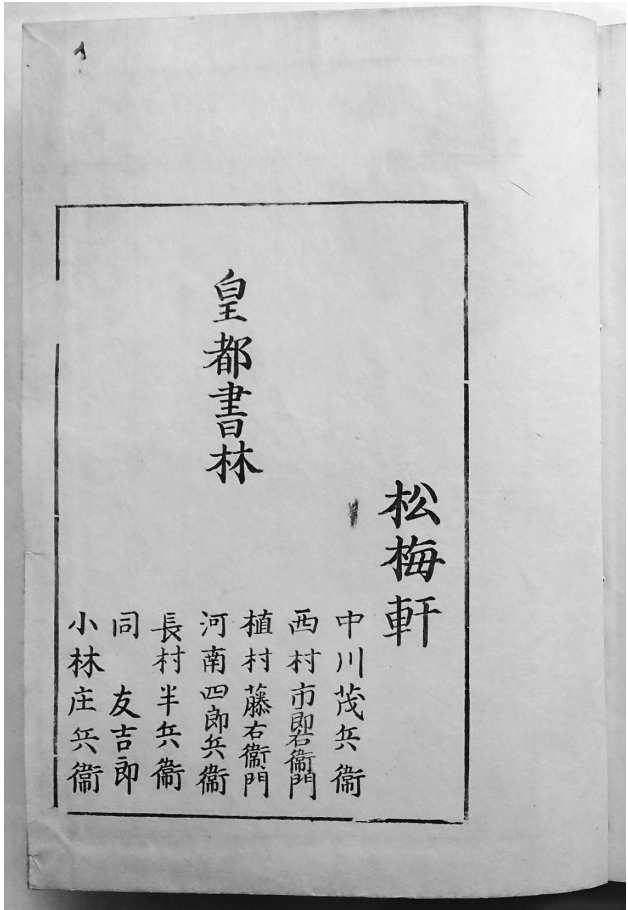 松梅軒
皇都書林
中川茂兵衞
西村市郎右衞門
植村藤右衞門
河南四郎兵衞
長村半兵衞
同 友吉郎
小林庄兵衞